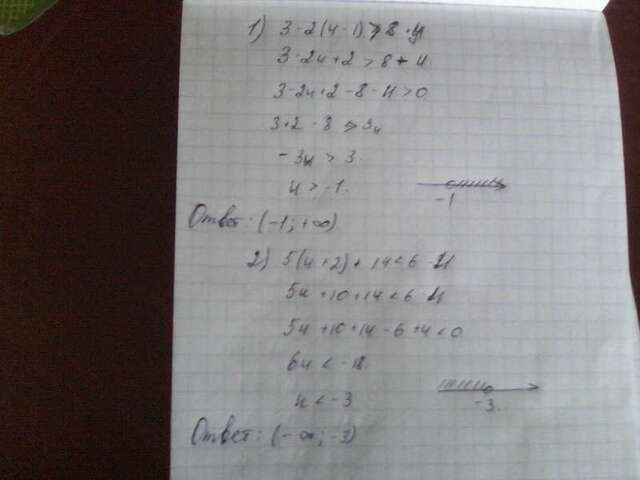 1) 3-2(у-1)>8+у
3-2у+2>8+у
3-2у+2-8-у>0
3+2-8>3у
-3у>3
у>-1
-1
Ответ: (-1; +∞)
2) 5(у+2)+14<6-у
5у+10+14<6-у
5у+10+14-6+у<0
6у<-18
у<-3
-3
Ответ: (-∞; -3)